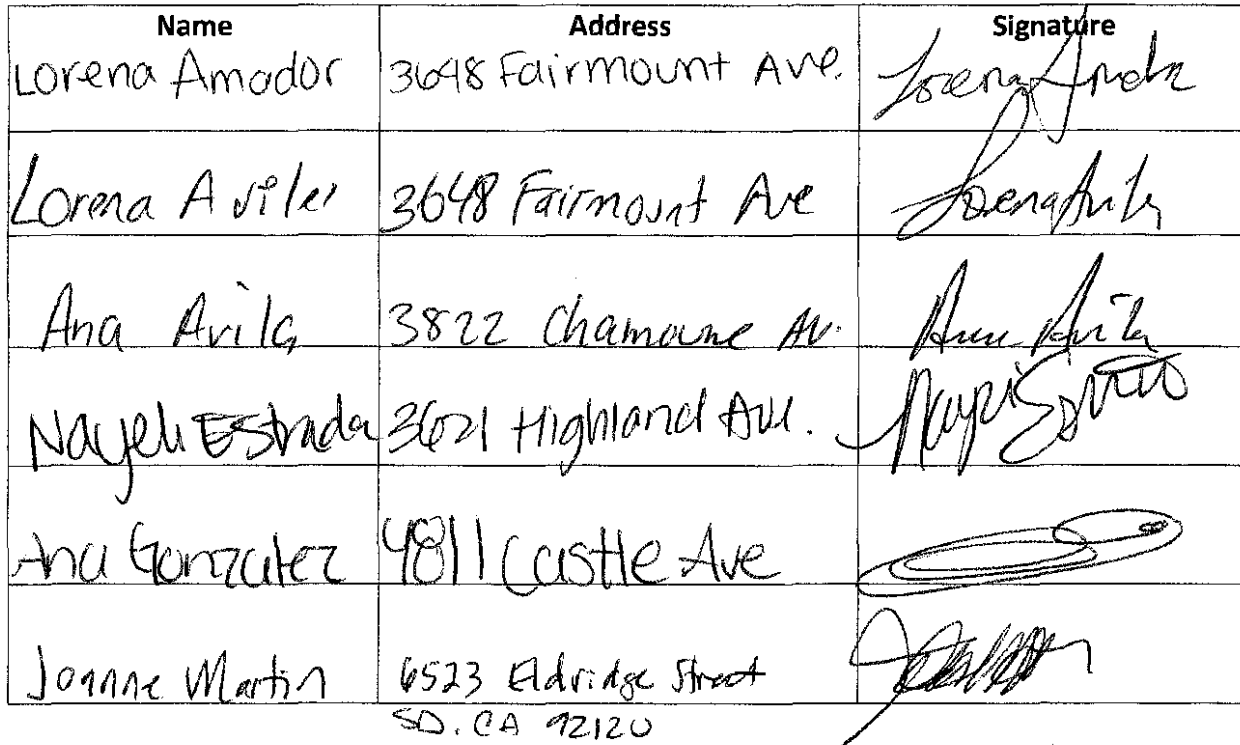 Name Address Signature
Lorena Amador 3648 Fairmount Ave. Lorena Amador
Lorena Aviles 3648 Fairmount Ave Lorena Aviles
Ana Avila 3822 Chamoune Av. Ana Avila
Nayeli Estrada 3621 Highland Ave.
Ana Gonzalez 4811 Castle Ave
Joanne Martin 6523 Eldridge Street
SD. CA 92120